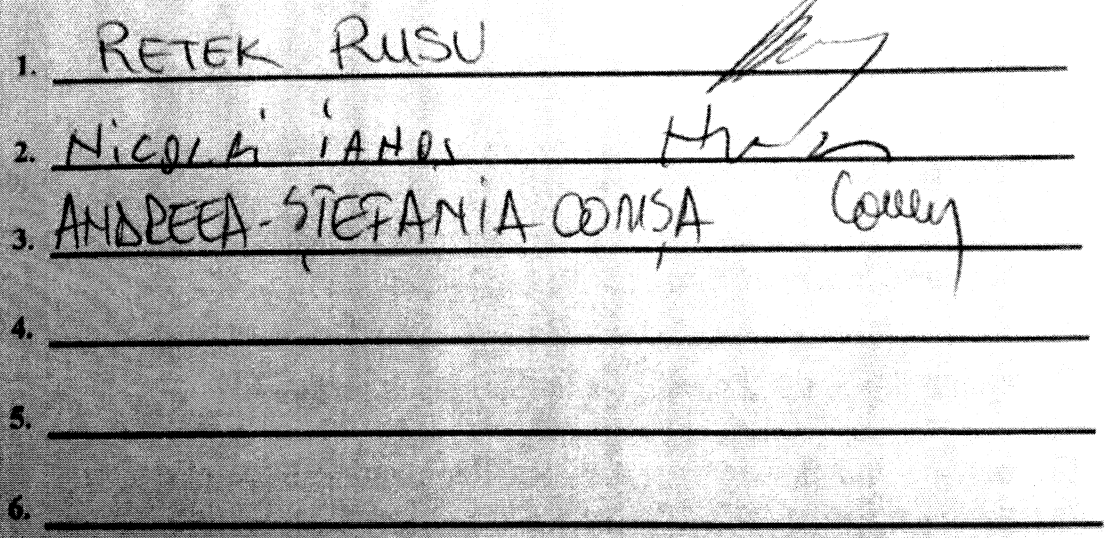 1. RETEK RUSU
2. NiCOLAi iANOŞ
3. ANDREEA-ŞTEFANiA COMŞA
4.
5.
6.